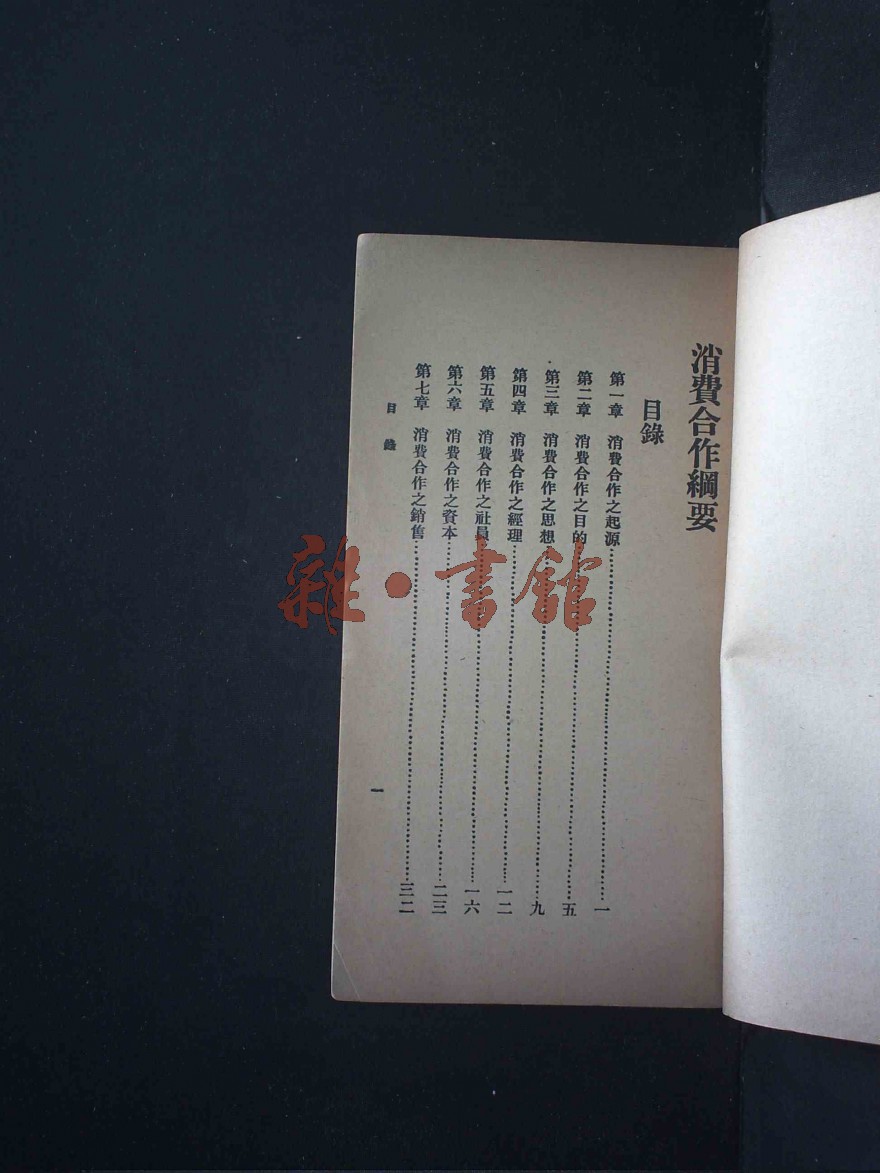 消費合作綱要
目錄
第一章 消費合作之起源……一
第二章 消費合作之目的……五
第三章 消費合作之思想……九
第四章 消費合作之經理……一二
第五章 消費合作之社員……一六
第六章 消費合作之資本……二三
第七章 消費合作之銷售……三二
目錄
一
雜·書館